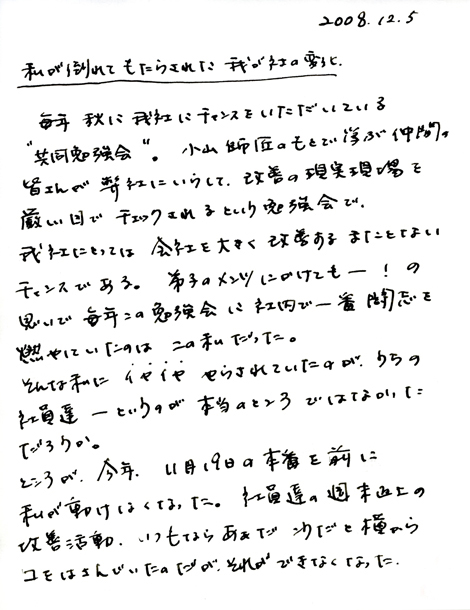 2008.12.5
私が倒れてもたらされた 我が社の変化.
毎年 秋に 我社にチャンスをいただいている
"共同勉強会"。 小山師匠のもとで学ぶ仲間の
皆さんが 弊社にいらして、改善の現実現場を
厳しい目で チェックされるという勉強会で、
我社にとっては 会社を大きく改善する またとない
チャンスである。 弟子のメンツにかけても ー ! の
思いで 毎年この勉強会に 社内で一番 闘志を
燃やしていたのは この私だった。
そんな私に イヤイヤ やらされていたのが、うちの
社員達 ー というのが 本当のところ ではなかった
だろうか。
ところが、今年、 11月19日の本番を前に
私が動けなくなった。 社員達の週末返上の
改善活動、いつもなら あぁだ こうだと 横から
口をはさんでいたのだが、それが できなくなった.